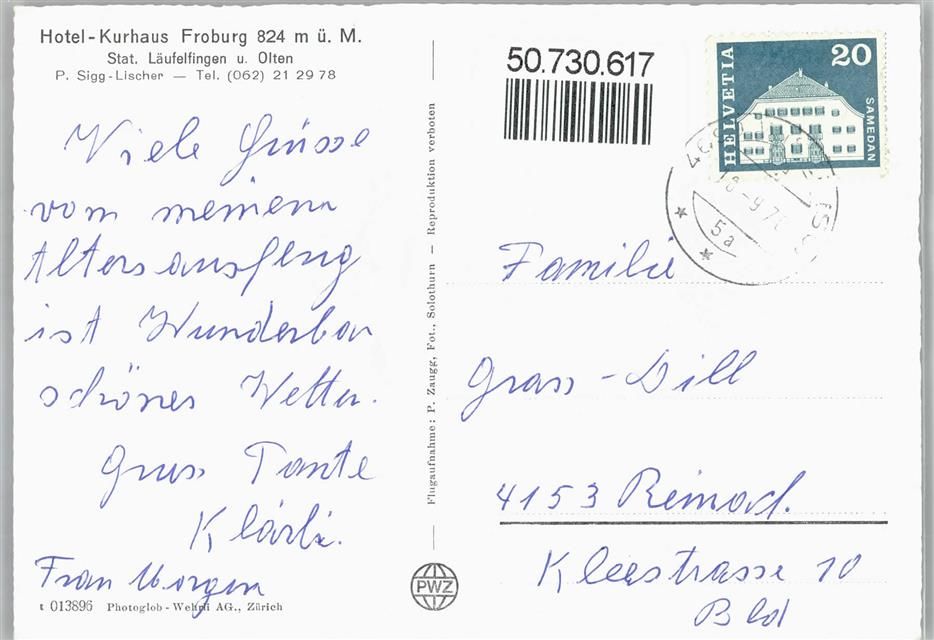 Hotel-Kurhaus Froburg 824 m ü. M.
Stat. Läufelfingen u. Olten
P. Sigg-Lischer — Tel. (062) 21 29 78
Viele Grüsse
vom meinem
Altersausfleng
ist Wunderbar
schönes Wetter.
Gruss Tante
Klärli.
Frau Morgen
t 013896 Photoglob-Wehrli AG., Zürich
Flugaufnahme: P. Zaugg, Fot., Solothurn — Reproduktion verboten
PWZ
50.730.617
HELVETIA
20
SAMEDAN
5a
Familie
Grass-Dill
4153 Reinach.
Kleestrasse 10
Bld